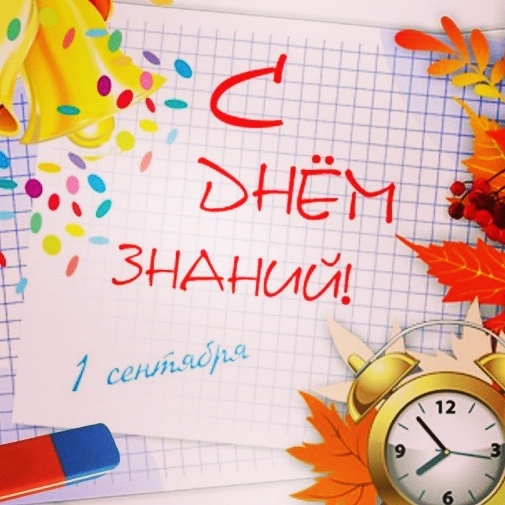 С
ДНЁМ
ЗНАНИЙ!
1 сентября
12
9
3
6